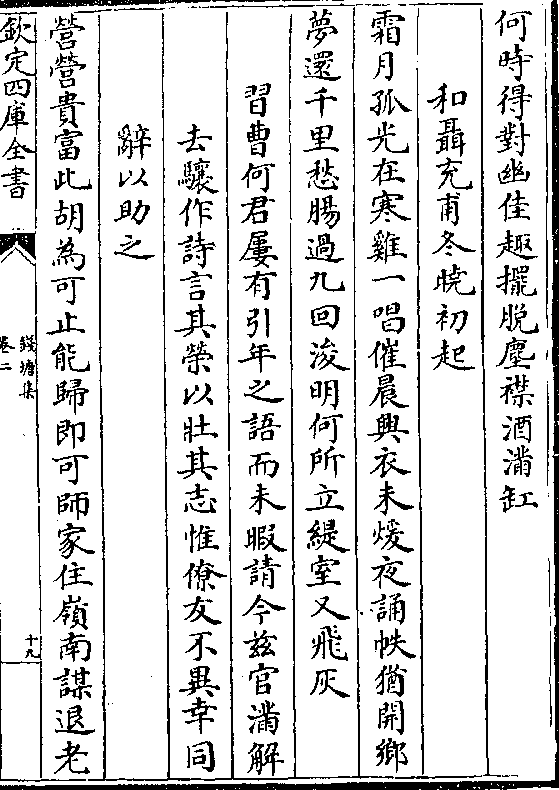 何時得對幽佳趣擺脫塵襟酒滿缸
和聶充甫冬曉初起
霜月孤光在寒雞一唱催晨興衣未煖夜誦帙猶開鄉
夢還千里愁腸過九回浚明何所立緹室又飛灰
習曹何君屢有引年之語而未暇請今玆官滿解
去驤作詩言其榮以壯其志惟僚友不異幸同
辭以助之
營營貴富此胡為可止能歸即可師家住嶺南謀退老
欽定四庫全書
錢塘集
卷二
十九